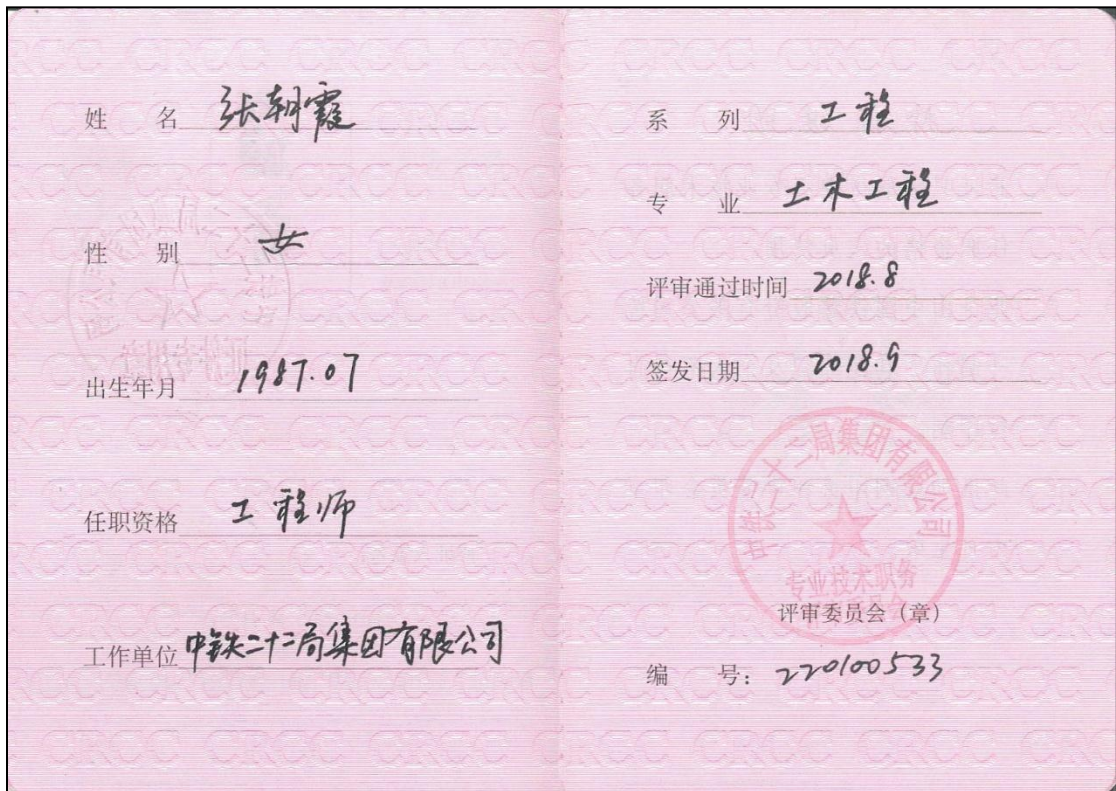 姓 名 张朝霞
性 别 女
出生年月 1987.07
任职资格 工程师
工作单位 中铁二十二局集团有限公司
系 列 工程
专 业 土木工程
评审通过时间 2018.8
签发日期 2018.9
中铁二十二局集团有限公司
专业技术职务
评审委员会（章）
编 号：220100533
CRCC